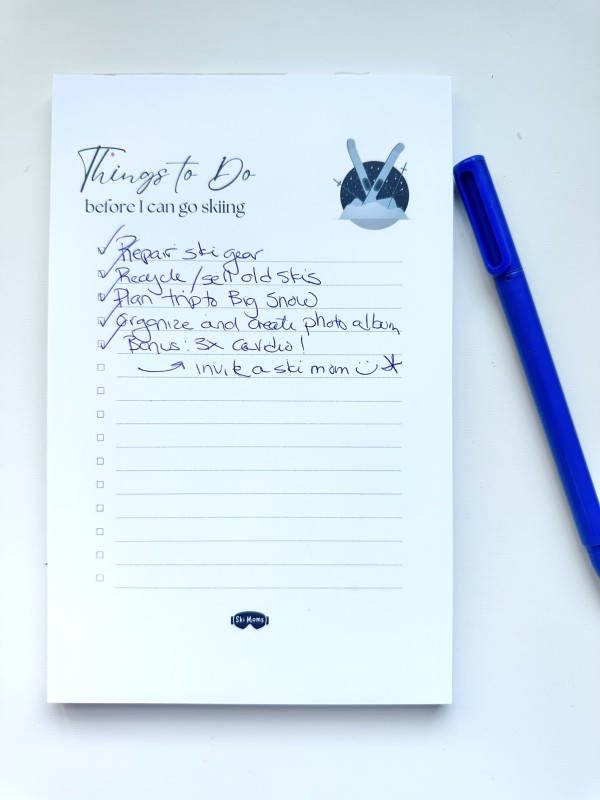 Things to Do
before I can go skiing
Repair ski gear
Recycle/sell old skis
Plan trip to Big Snow
Organize and create photo album
Bonus: 3x Cardio!
invite a ski mom
Ski Moms